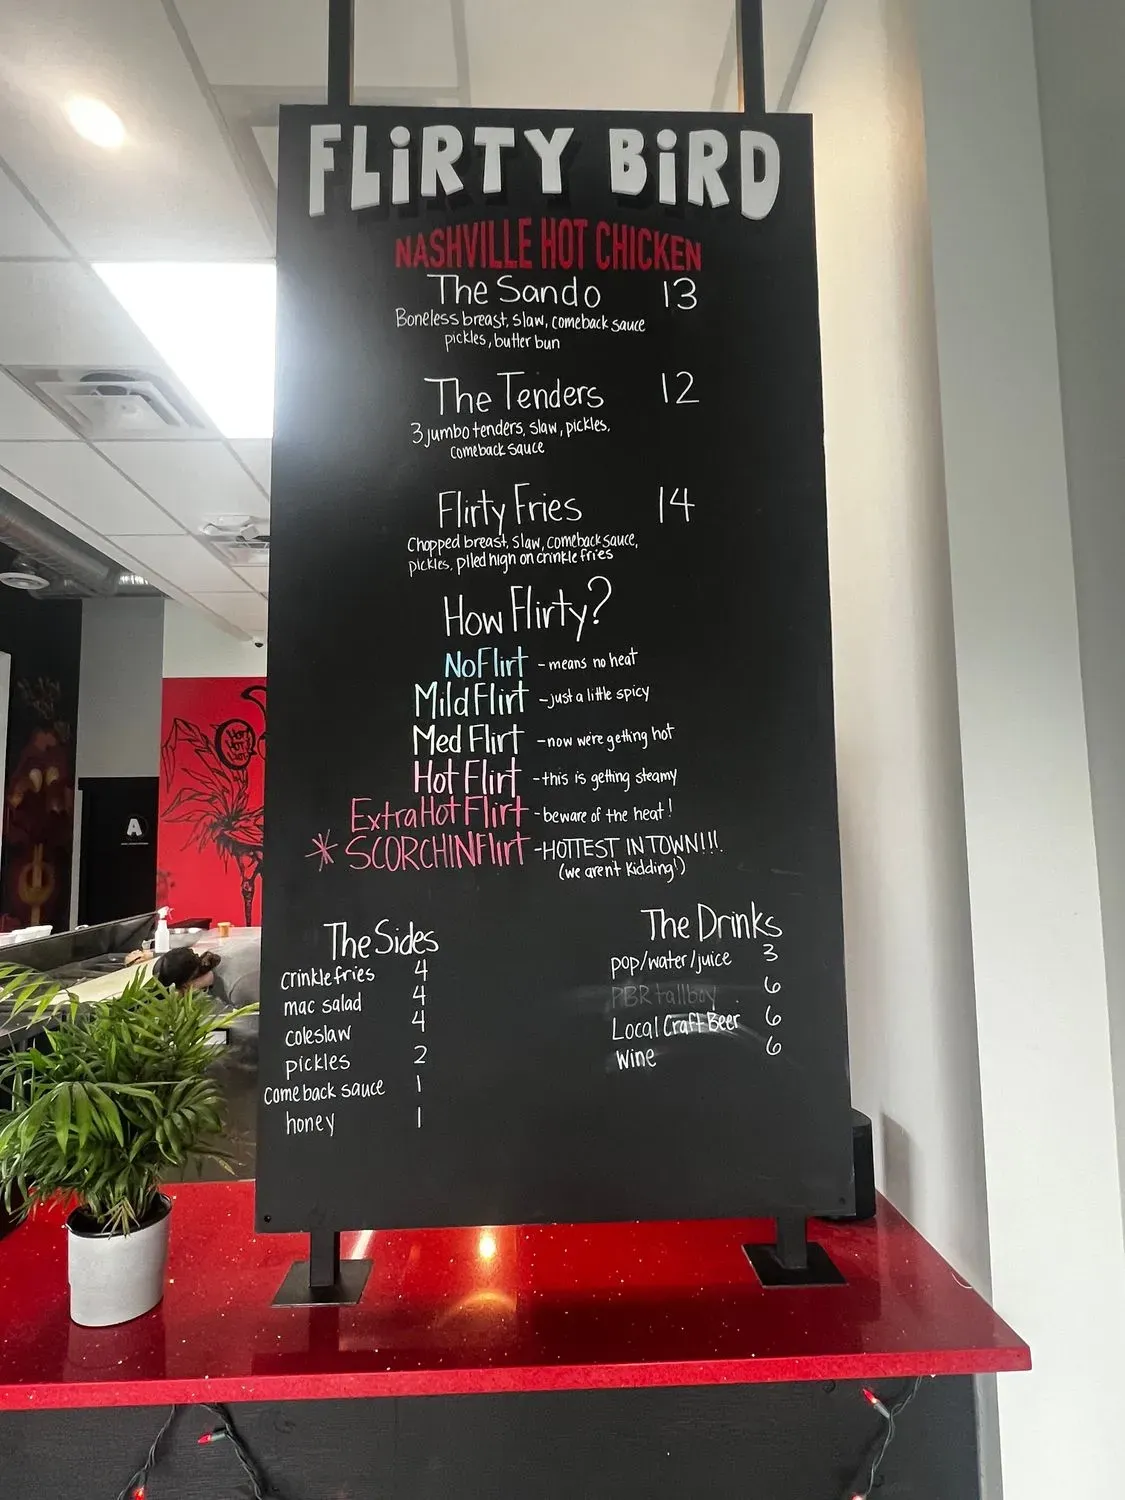 FLiRTY BiRD
NASHVILLE HOT CHICKEN
The Sando 13
Boneless breast, slaw, comeback sauce
pickles, butter bun
The Tenders 12
3 jumbo tenders, slaw, pickles,
comeback sauce
Flirty Fries 14
Chopped breast, slaw, comeback sauce,
pickles, piled high on crinkle fries
How Flirty?
No Flirt - means no heat
Mild Flirt - just a little spicy
Med Flirt - now we're getting hot
Hot Flirt - this is getting steamy
Extra Hot Flirt - beware of the heat!
* SCORCHIN Flirt - HOTTEST IN TOWN!!!
(we aren't kidding!)
The Sides
crinkle fries 4
mac salad 4
coleslaw 4
pickles 2
comeback sauce 1
honey 1
The Drinks
pop/water/juice 3
PBR tallboy 6
Local Craft Beer 6
Wine 6
HOT
HOT
HOT
A